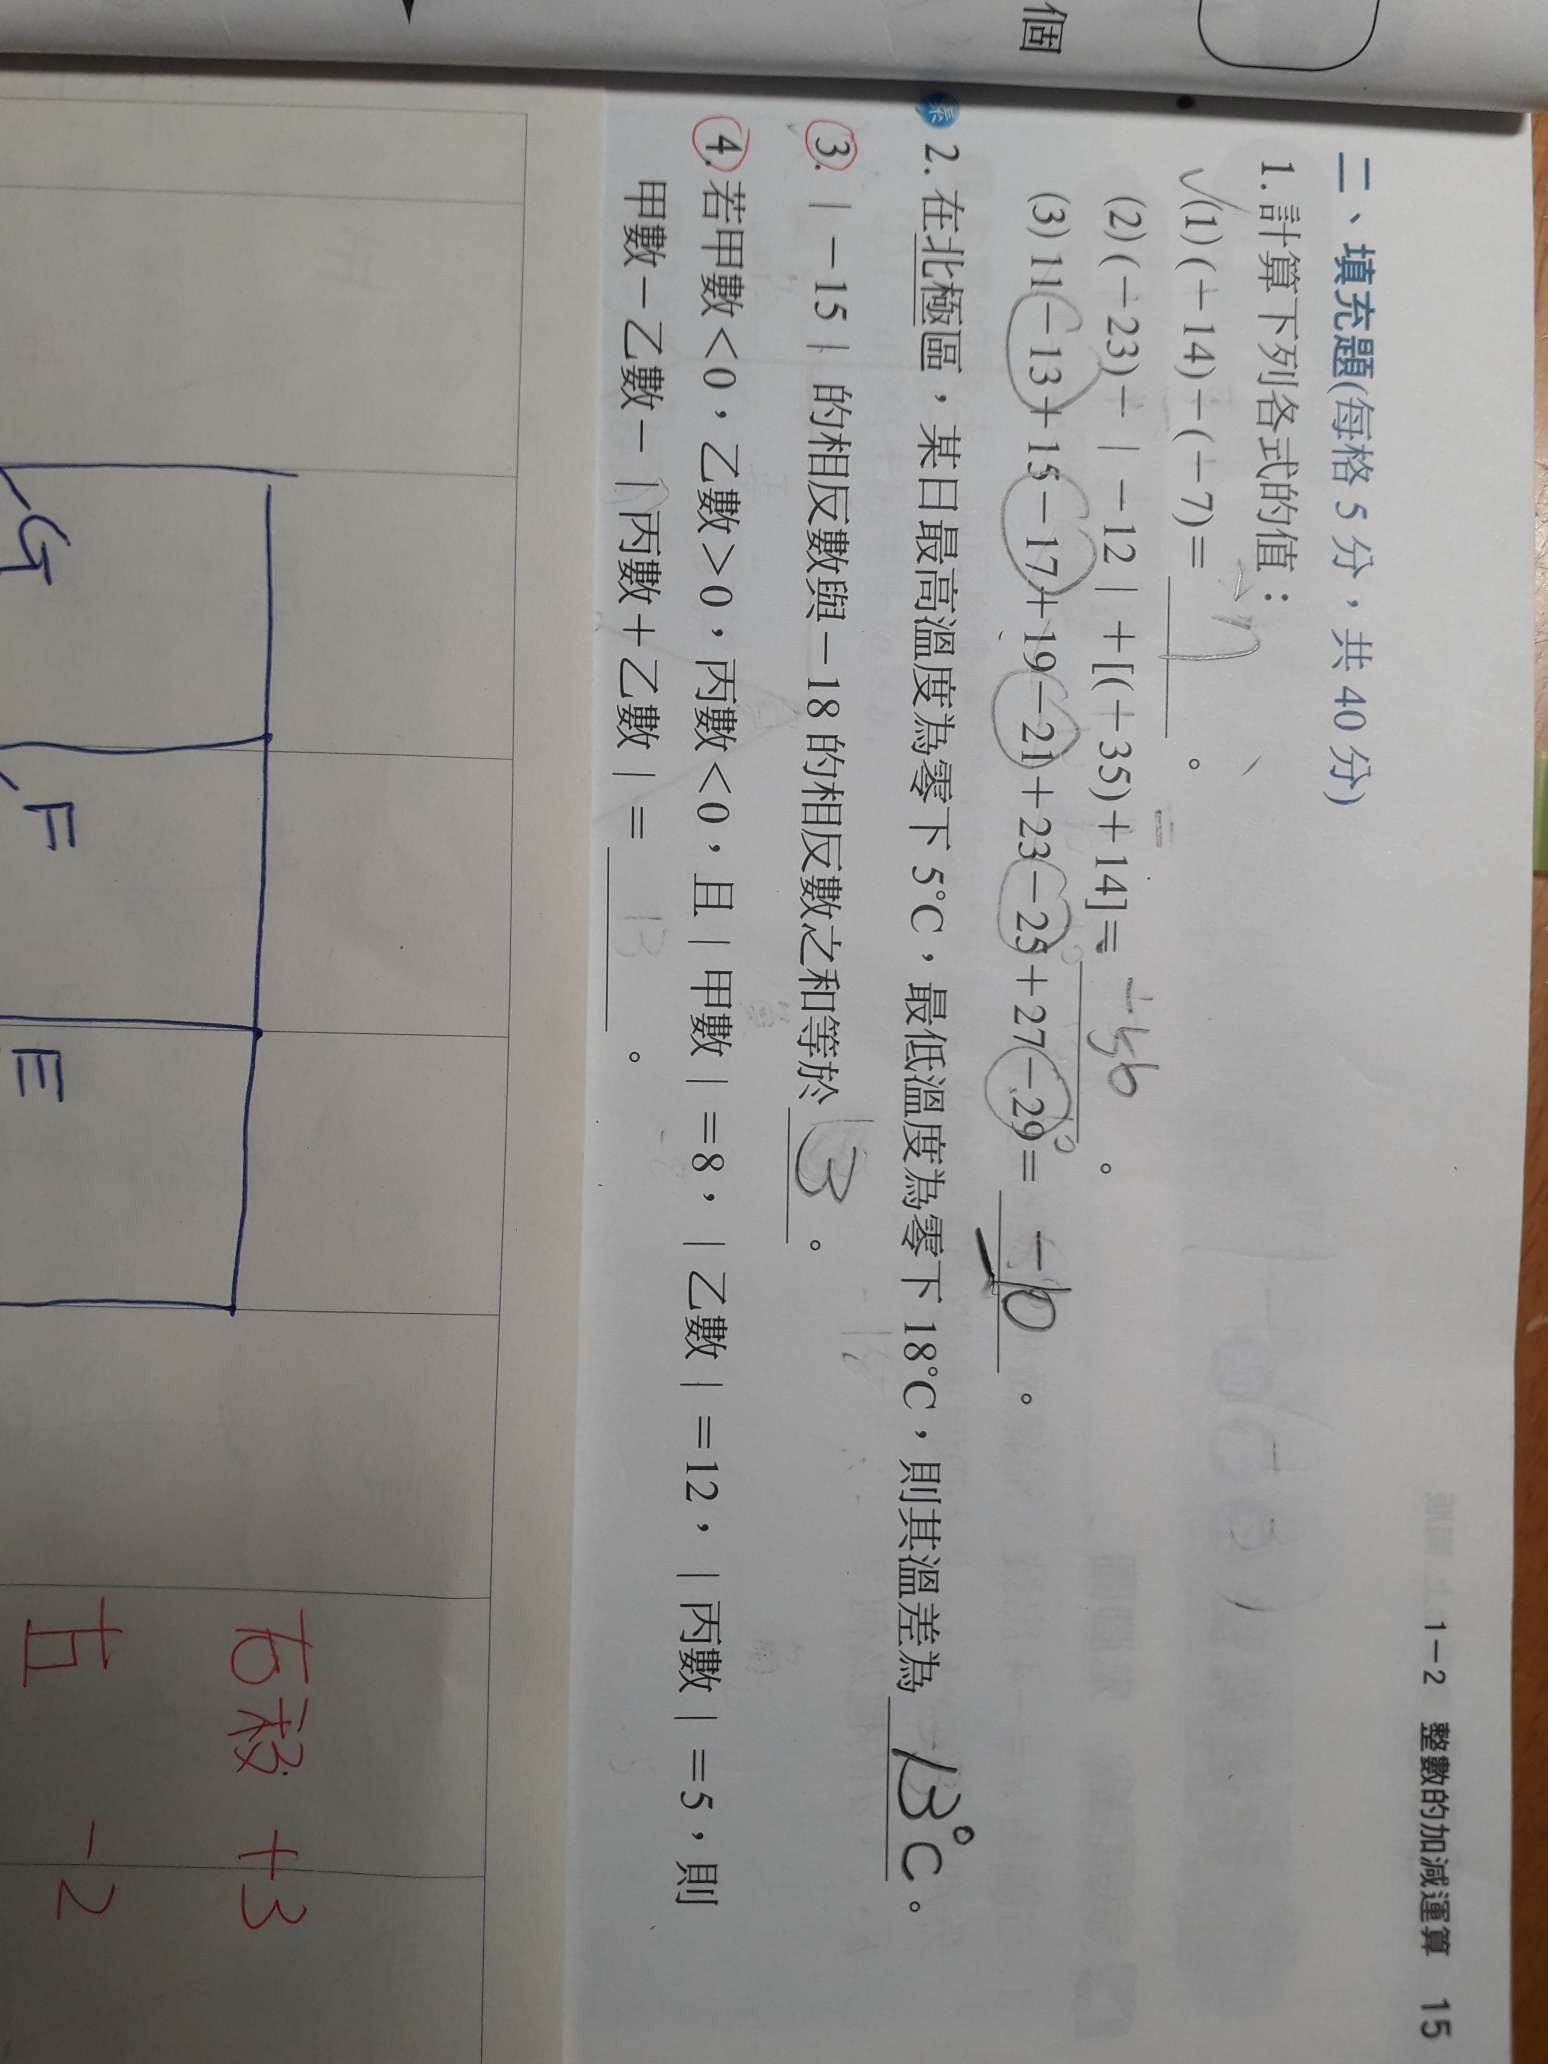 個
1－2 整數的加減運算 15
二、填充題(每格 5 分，共 40 分)
1. 計算下列各式的值：
(1) (＋14)－(－7)＝ 。
(2) (－23)－｜－12｜＋[(＋35)＋14]＝ 。
(3) 11－13＋15－17＋19－21＋23－25＋27－29＝ -10 。
2. 在北極區，某日最高溫度為零下 5°C，最低溫度為零下 18°C，則其溫差為 13°C 。
3. ｜－15｜的相反數與－18 的相反數之和等於 3 。
4. 若甲數＜0，乙數＞0，丙數＜0，且｜甲數｜＝8，｜乙數｜＝12，｜丙數｜＝5，則
甲數－乙數－｜丙數＋乙數｜＝ 13 。
G F E
右移 +3
右 -2